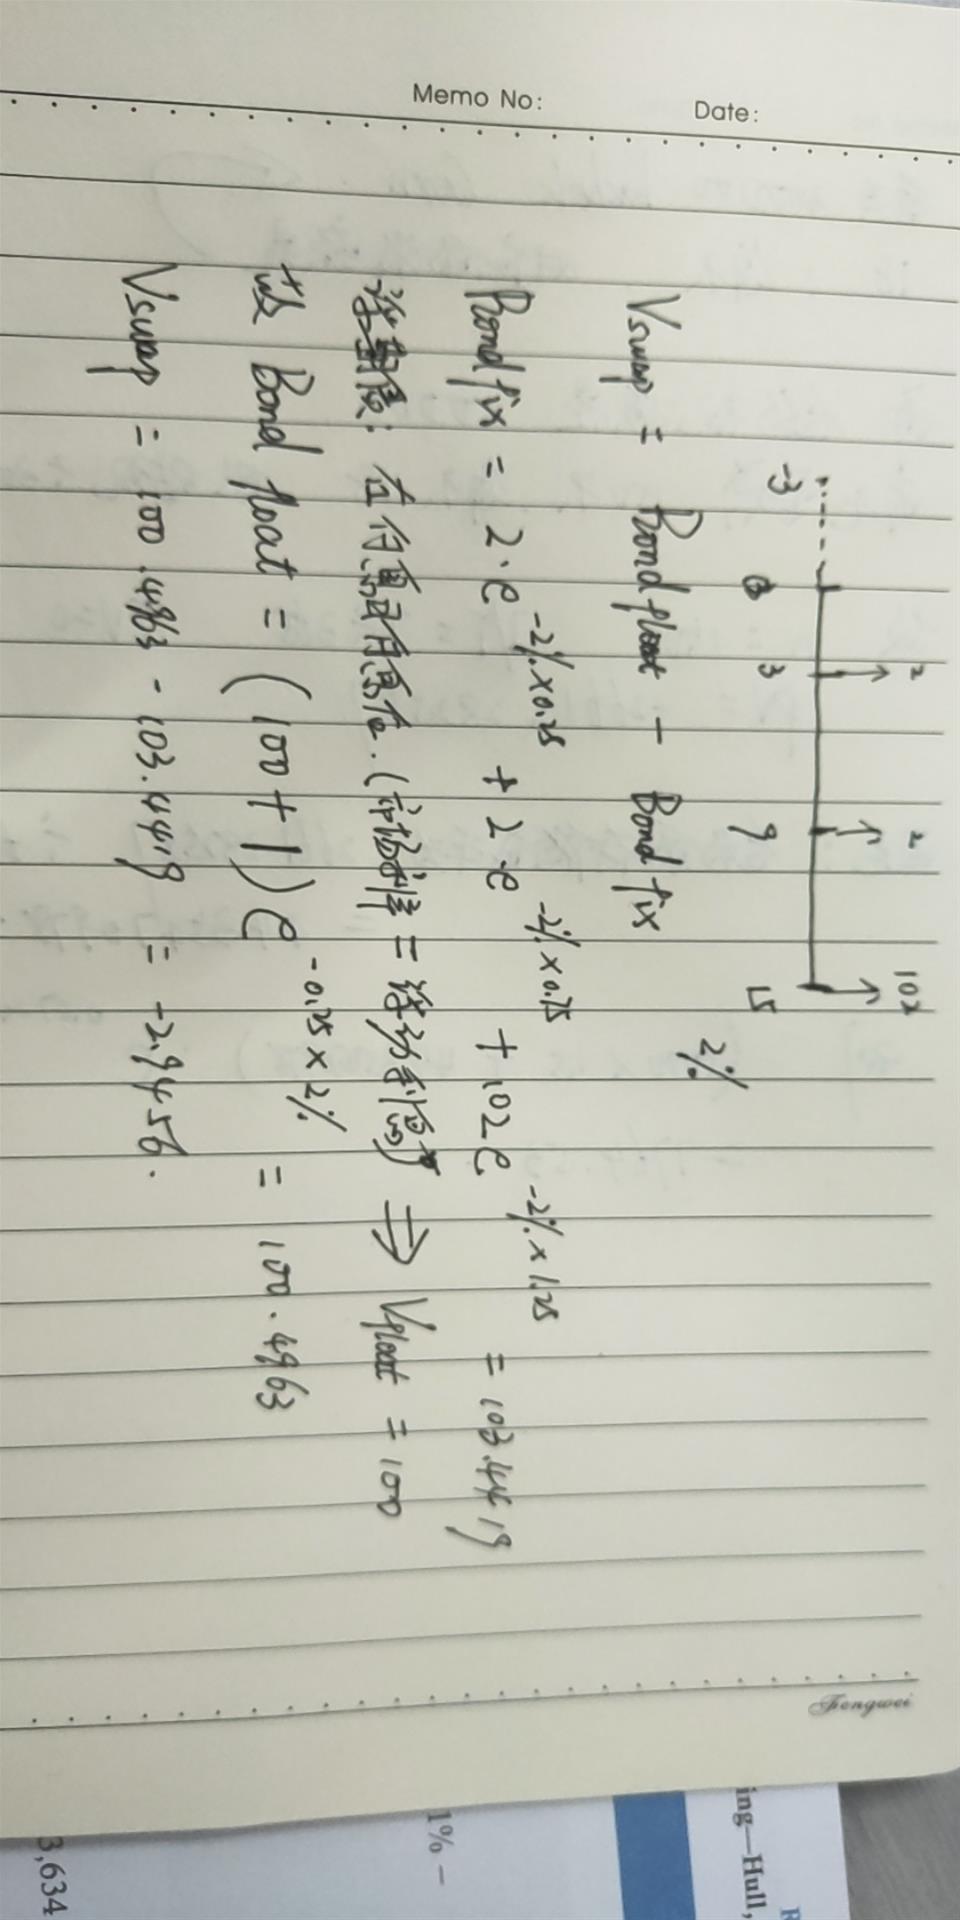 Memo No:
Date:
2 2 102
-3 0 3 9 15
2%
Vswap = Bond float - Bond fix
Bond fix = 2·e^{-2%×0.25} + 2·e^{-2%×0.75} + 102e^{-2%×1.25} = 103.4419
浮动债: 在付息后有息在.(市场利率=浮动利息) ⇒ Vfloat = 100
故 Bond float = (100+1)e^{-0.25×2%} = 100.4963
Vswap = 100.4963 - 103.4419 = -2.9456.
Fengwei
ing—Hull,
1% –
3,634